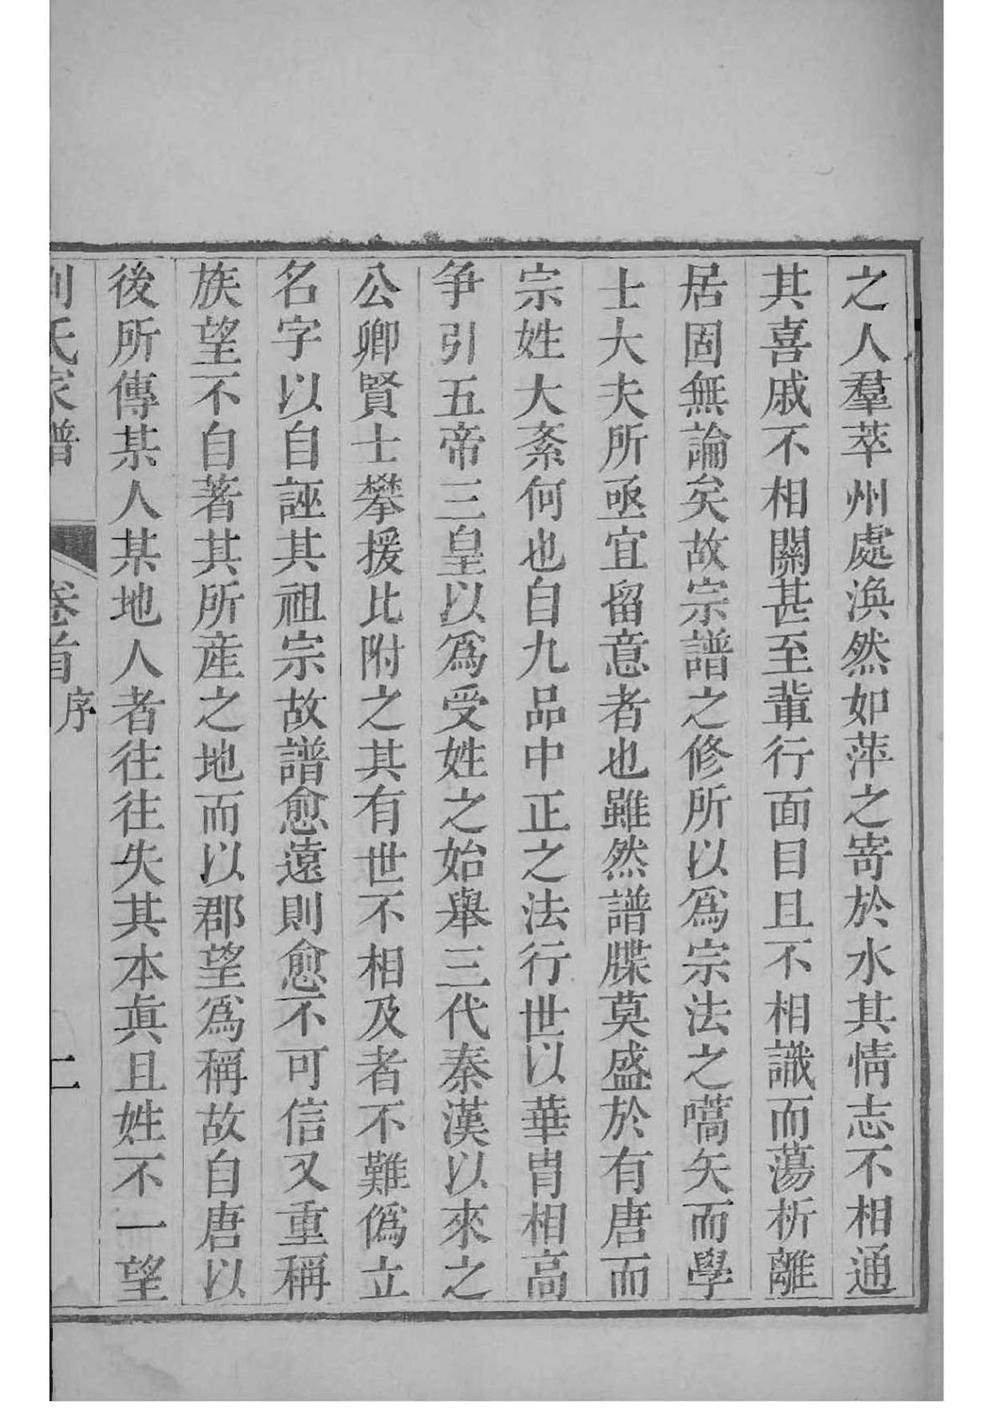 之人羣萃州處渙然如萍之寄於水其情志不相通
其喜戚不相關甚至輩行面目且不相識而蕩析離
居固無論矣故宗譜之修所以爲宗法之嚆矢而學
士大夫所亟宜留意者也雖然譜牒莫盛於有唐而
宗姓大紊何也自九品中正之法行世以華冑相高
争引五帝三皇以爲受姓之始舉三代秦漢以來之
公卿賢士攀援比附之其有世不相及者不難僞立
名字以自誣其祖宗故譜愈遠則愈不可信又重稱
族望不自著其所産之地而以郡望爲稱故自唐以
後所傳某人某地人者往往失其本眞且姓不一望
劉氏家譜 卷首 序 二